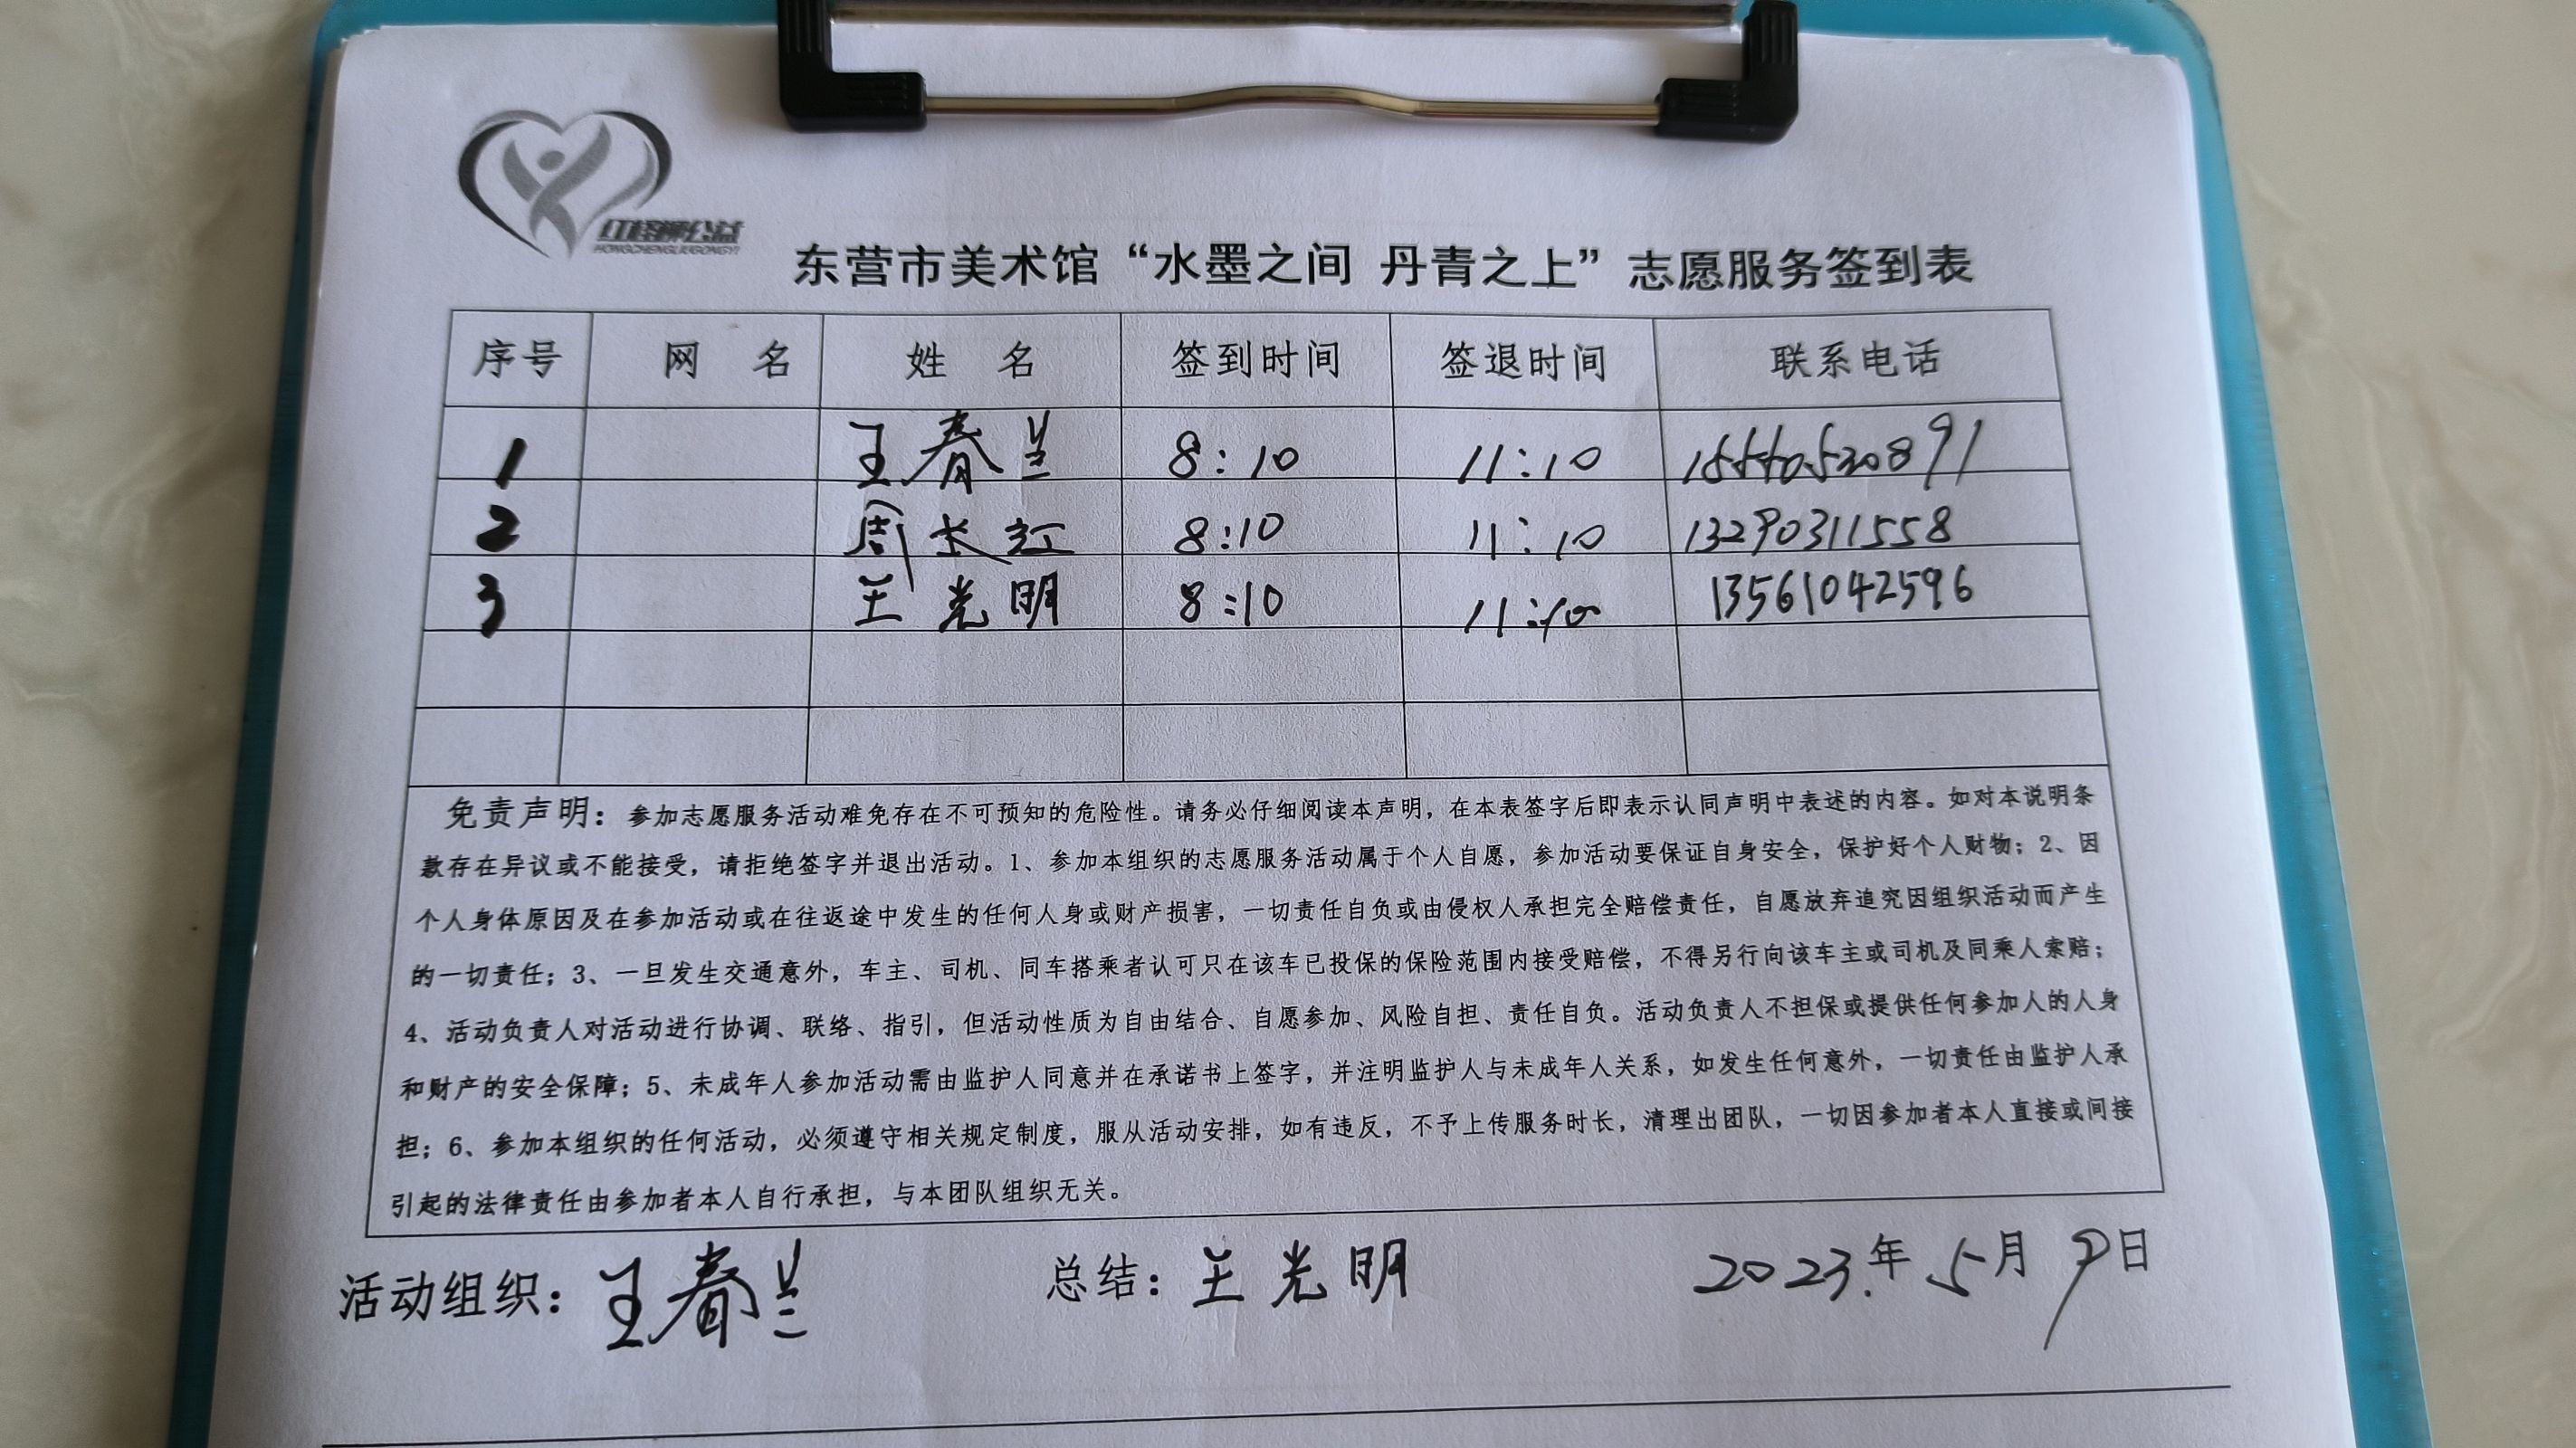 红柽柳公益
HONGCHENGLIUGONGYI
东营市美术馆“水墨之间 丹青之上”志愿服务签到表
序号 网 名 姓 名 签到时间 签退时间 联系电话
1 王春兰 8:10 11:10
2 周长红 8:10 11:10 13290311558
3 王光明 8:10 11:10 13561042596
免责声明：参加志愿服务活动难免存在不可预知的危险性。请务必仔细阅读本声明，在本表签字后即表示认同声明中表述的内容。如对本说明条
款存在异议或不能接受，请拒绝签字并退出活动。1、参加本组织的志愿服务活动属于个人自愿，参加活动要保证自身安全，保护好个人财物；2、因
个人身体原因及在参加活动或在往返途中发生的任何人身或财产损害，一切责任自负或由侵权人承担完全赔偿责任，自愿放弃追究因组织活动而产生
的一切责任；3、一旦发生交通意外，车主、司机、同车搭乘者认可只在该车已投保的保险范围内接受赔偿，不得另行向该车主或司机及同乘人索赔；
4、活动负责人对活动进行协调、联络、指引，但活动性质为自由结合、自愿参加、风险自担、责任自负。活动负责人不担保或提供任何参加人的人身
和财产的安全保障；5、未成年人参加活动需由监护人同意并在承诺书上签字，并注明监护人与未成年人关系，如发生任何意外，一切责任由监护人承
担；6、参加本组织的任何活动，必须遵守相关规定制度，服从活动安排，如有违反，不予上传服务时长，清理出团队，一切因参加者本人直接或间接
引起的法律责任由参加者本人自行承担，与本团队组织无关。
活动组织：王春兰 总结：王光明 2023.年 5月 9日